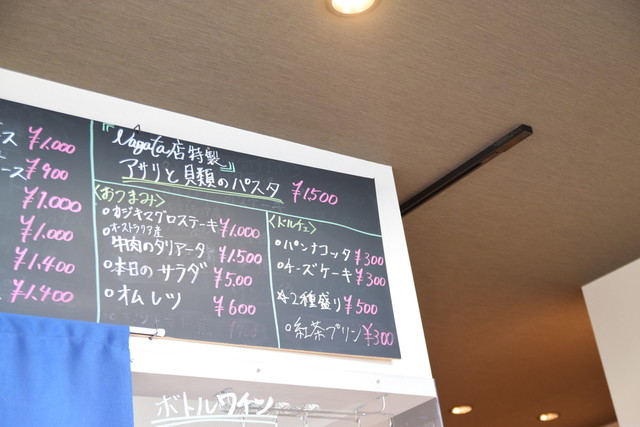 『Nagata店特製
アサリと貝類のパスタ ¥1,500
ス ¥1,000
ース ¥900
¥1,000
¥1,000
¥1,400
¥1,400
<おつまみ>
○カジキマグロステーキ ¥1,000
○オーストラリア産
牛肉のタリアータ ¥1,500
○本日のサラダ ¥5,00
○オムレツ ¥600
<ドルチェ>
○パンナコッタ ¥300
○チーズケーキ ¥300
☆2種盛り ¥500
○紅茶プリン ¥300
ボトルワイン